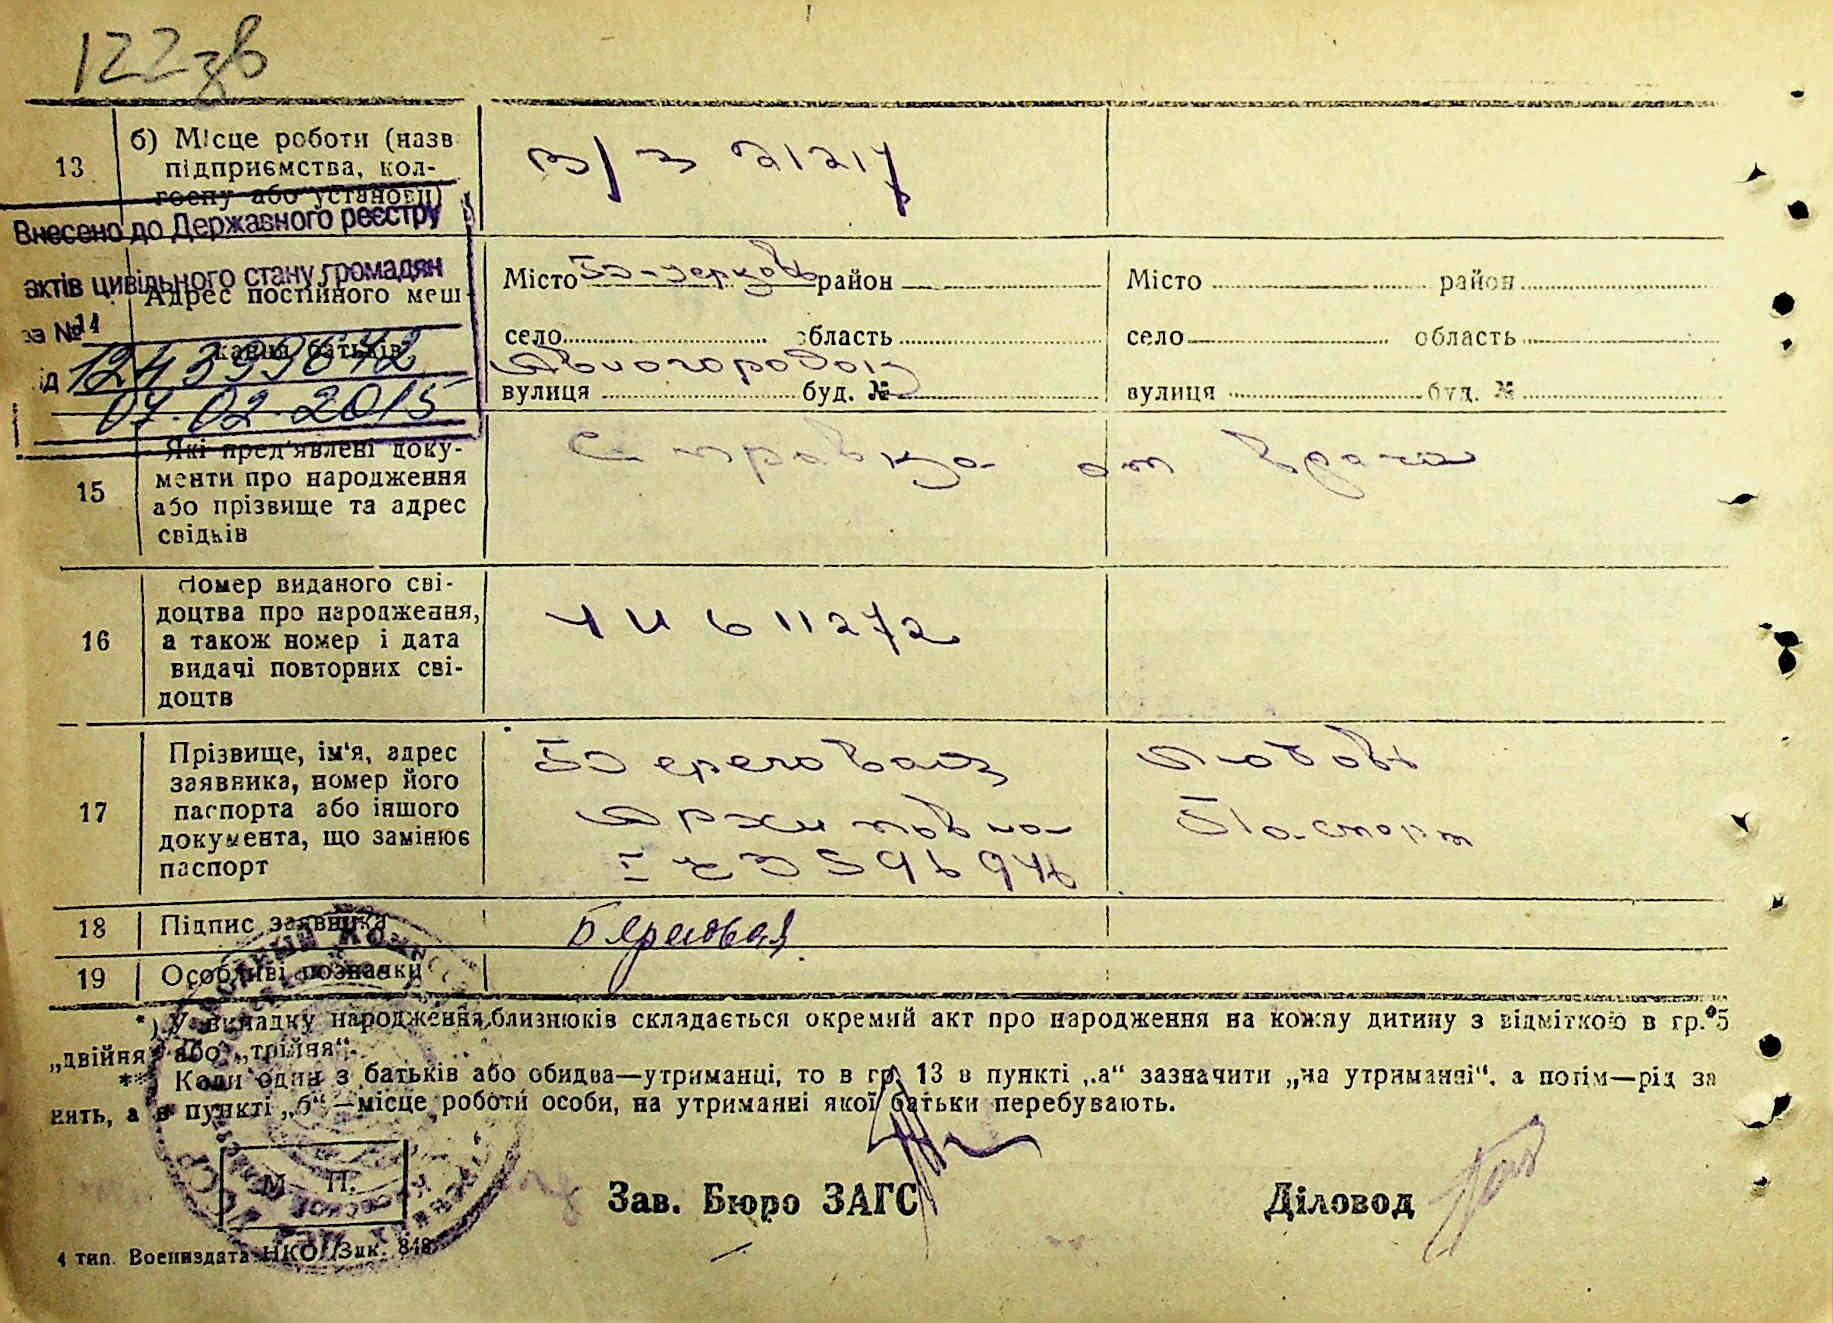 122зв
13
б) Місце роботи (назв
підприємства, кол-
госпу або установи)
Внесено до Державного реєстру
актів цивільного стану громадян
за №
124399642
від
07.02.2015
Адрес постійного меш-
канця батьків
Місто Б-церковь район
село область
Авиогородок
вулиця буд. №
Місто район
село область
вулиця буд. №
15
Які пред'явлені доку-
менти про народження
або прізвище та адрес
свідків
Справка от врача
16
Номер виданого сві-
доцтва про народження,
а також номер і дата
видачі повторних сві-
доцтв
ЧИ 611272
17
Прізвище, ім'я, адрес
заявника, номер його
паспорта або іншого
документа, що замінює
паспорт
Береговая Любовь
Архиповна Паспорт
18
Підпис заявника
Береговая
19
Особливі позначки
*) У випадку народження близнюків складається окремий акт про народження на кожну дитину з відміткою в гр. 5
„двійня" або „трійня".
**) Коли один з батьків або обидва—утриманці, то в гр. 13 в пункті „а" зазначити „на утриманні", а потім—рід за
нять, а в пункті „б"—місце роботи особи, на утриманні якої батьки перебувають.
М. П.
Зав. Бюро ЗАГС
Діловод
4 тип. Воениздата НКО. Зак. 848